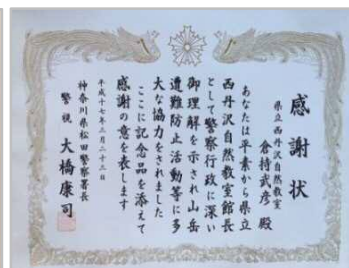 感謝状
県立西丹沢自然教室
倉持武彦 殿
あなたは平素から県立
西丹沢自然教室館長
として警察行政に深い
御理解を示され山岳
遭難防止活動等に多
大な協力をされました
ここに記念品を添えて
感謝の意を表します
平成十七年三月二十三日
神奈川県松田警察署長
警視 大橋康司